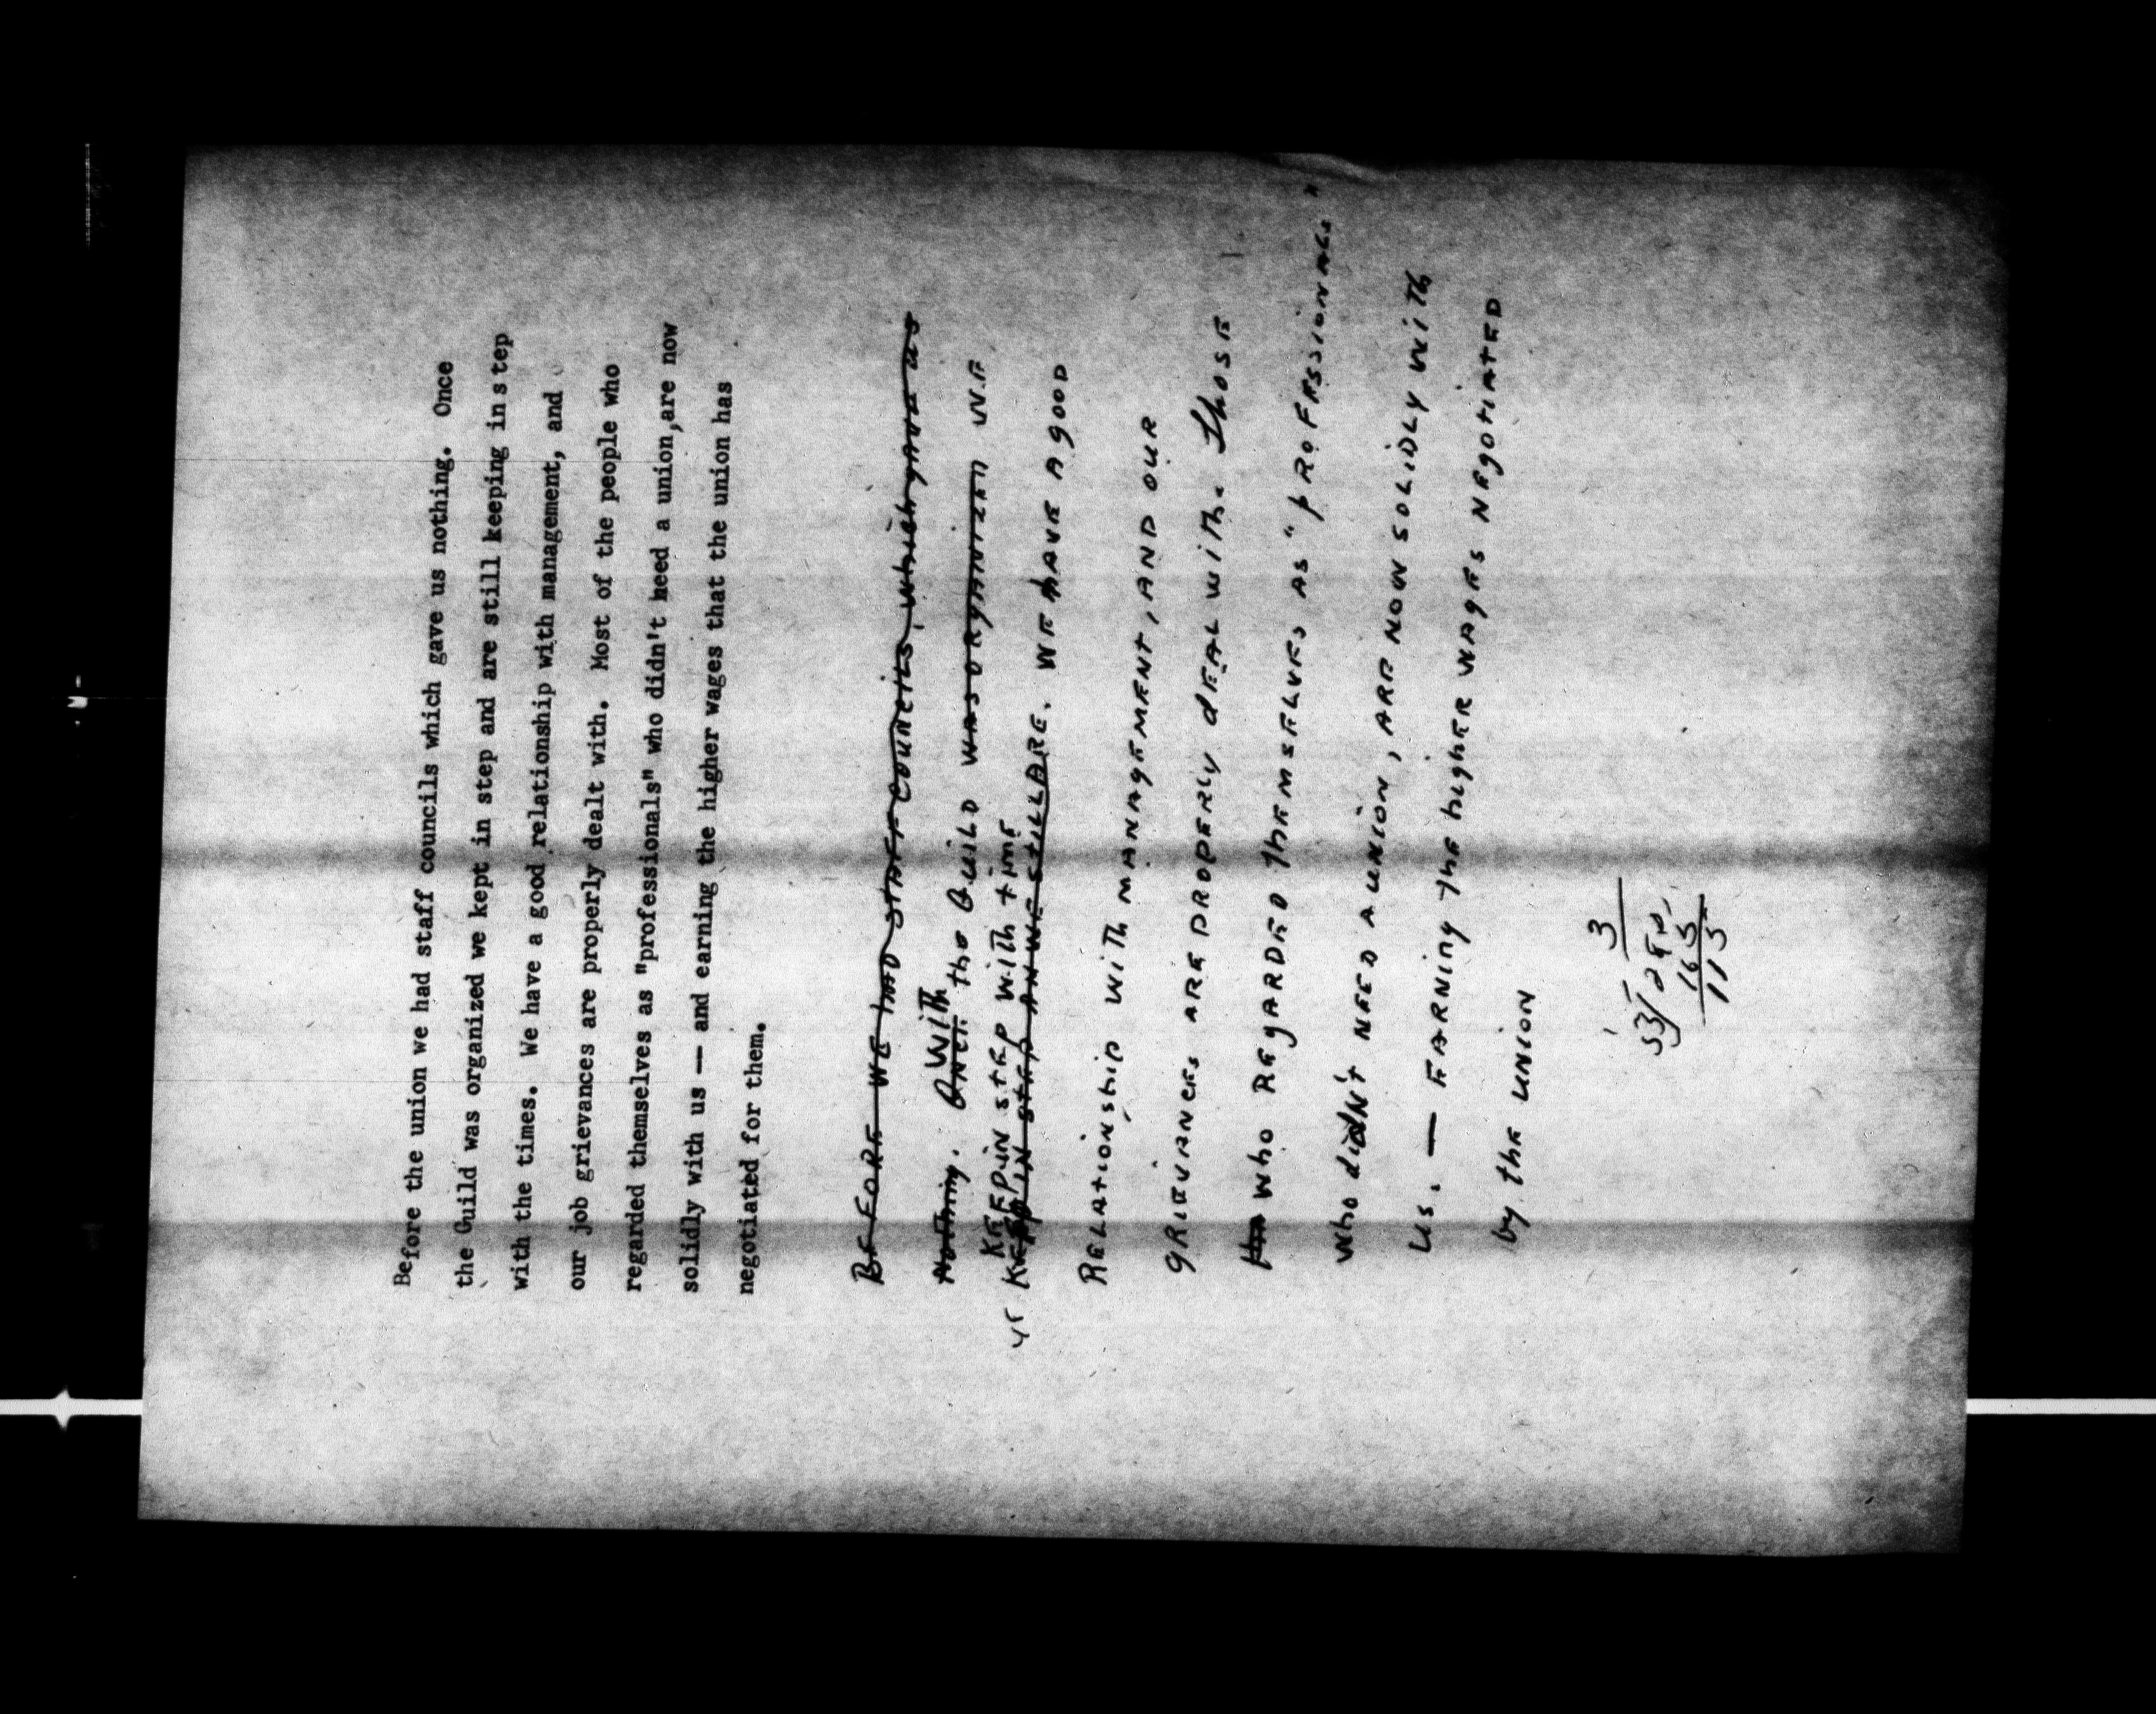 Before the union we had staff councils which gave us nothing. Once
the Guild was organized we kept in step and are still keeping in step
with the times. We have a good relationship with management, and
our job grievances are properly dealt with. Most of the people who
regarded themselves as "professionals" who didn't need a union, are now
solidly with us — and earning the higher wages that the union has
negotiated for them.
BEFORE WE had STAFF COUNCILS, which gave us
Nothing. ONCE With the Guild WAS ORGANIZED WE
KEEP IN STEP With time
KEPT IN STEP AN WE STILL ARE. WE HAVE A good
RELATIONship With MANAGEMENT, AND OUR
GRIEVANCES ARE PROPERLY dEAL With. Those
who REGARDED ThEMSELVES AS "pROFESSIONALS"
who didN't NEED A UNION, ARE NOW SOLIDLY With
US. — EARNINg The higHER WAgES NEgOTIATED
by thE UNION
3
165
115